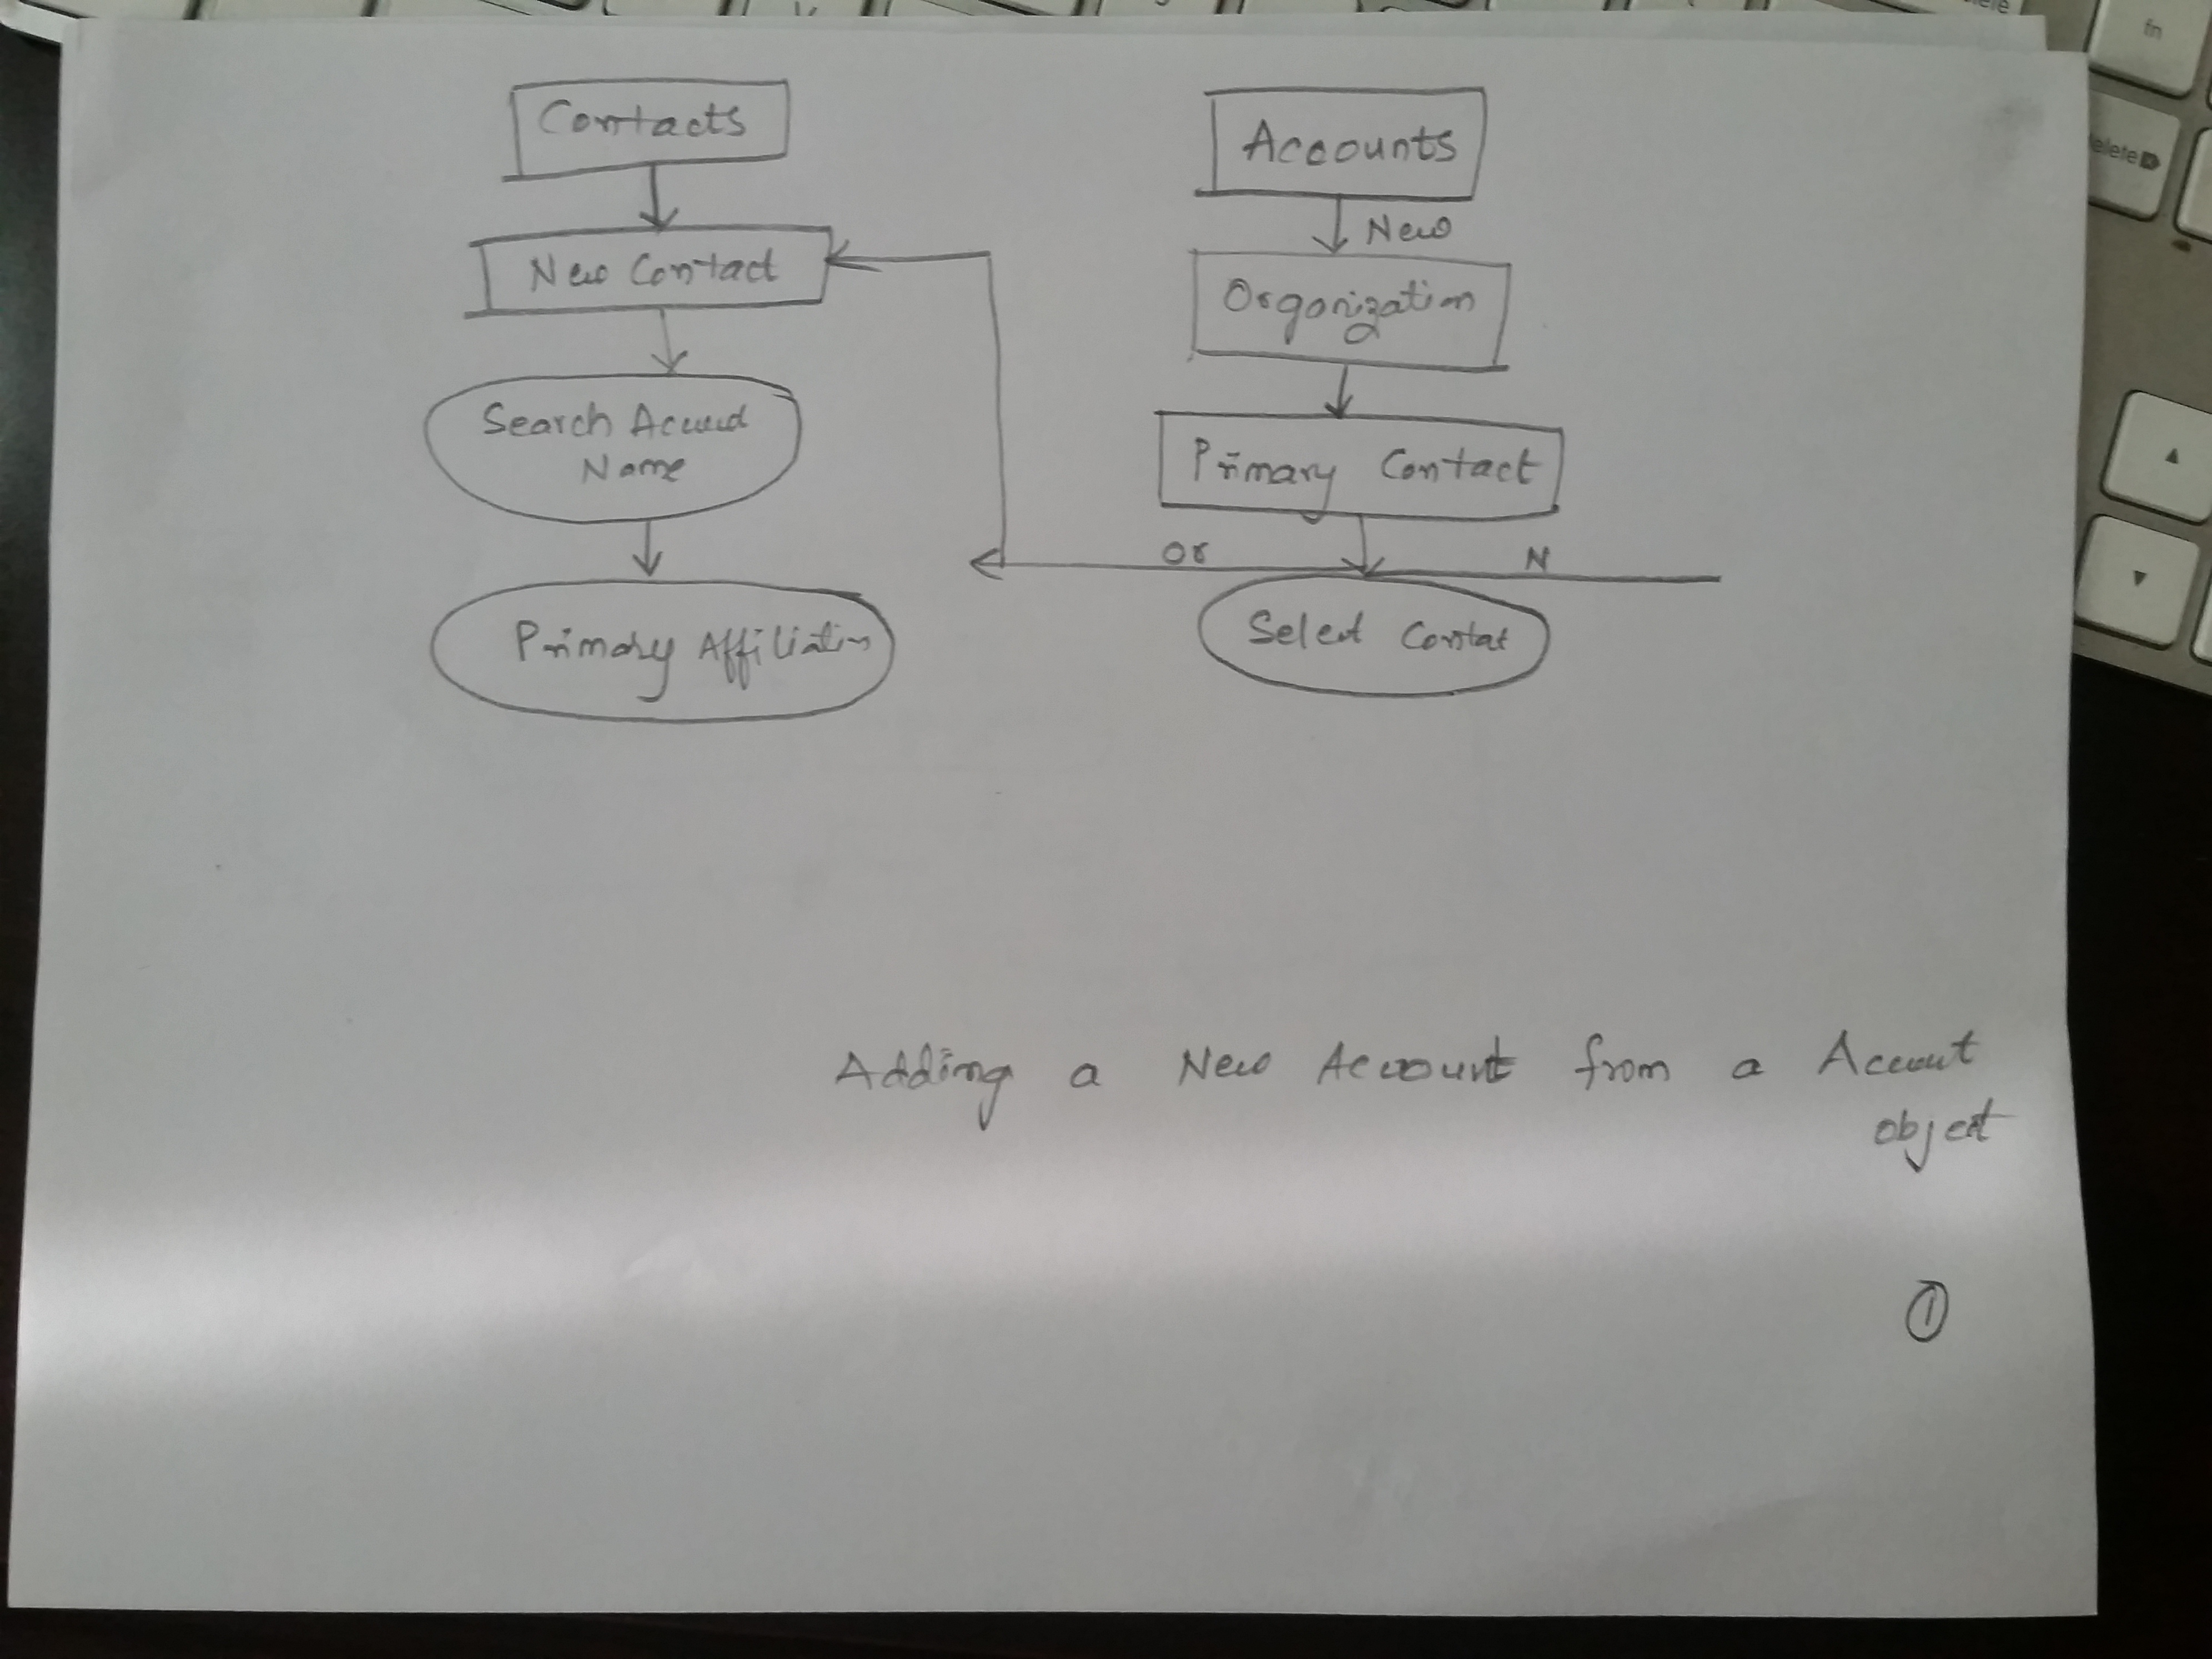 Contacts
New Contact
Search Account
Name
Primary Affiliation
Accounts
New
Organization
Primary Contact
or
N
Select Contat
Adding a New Account from a Account
object
1
fn
delete